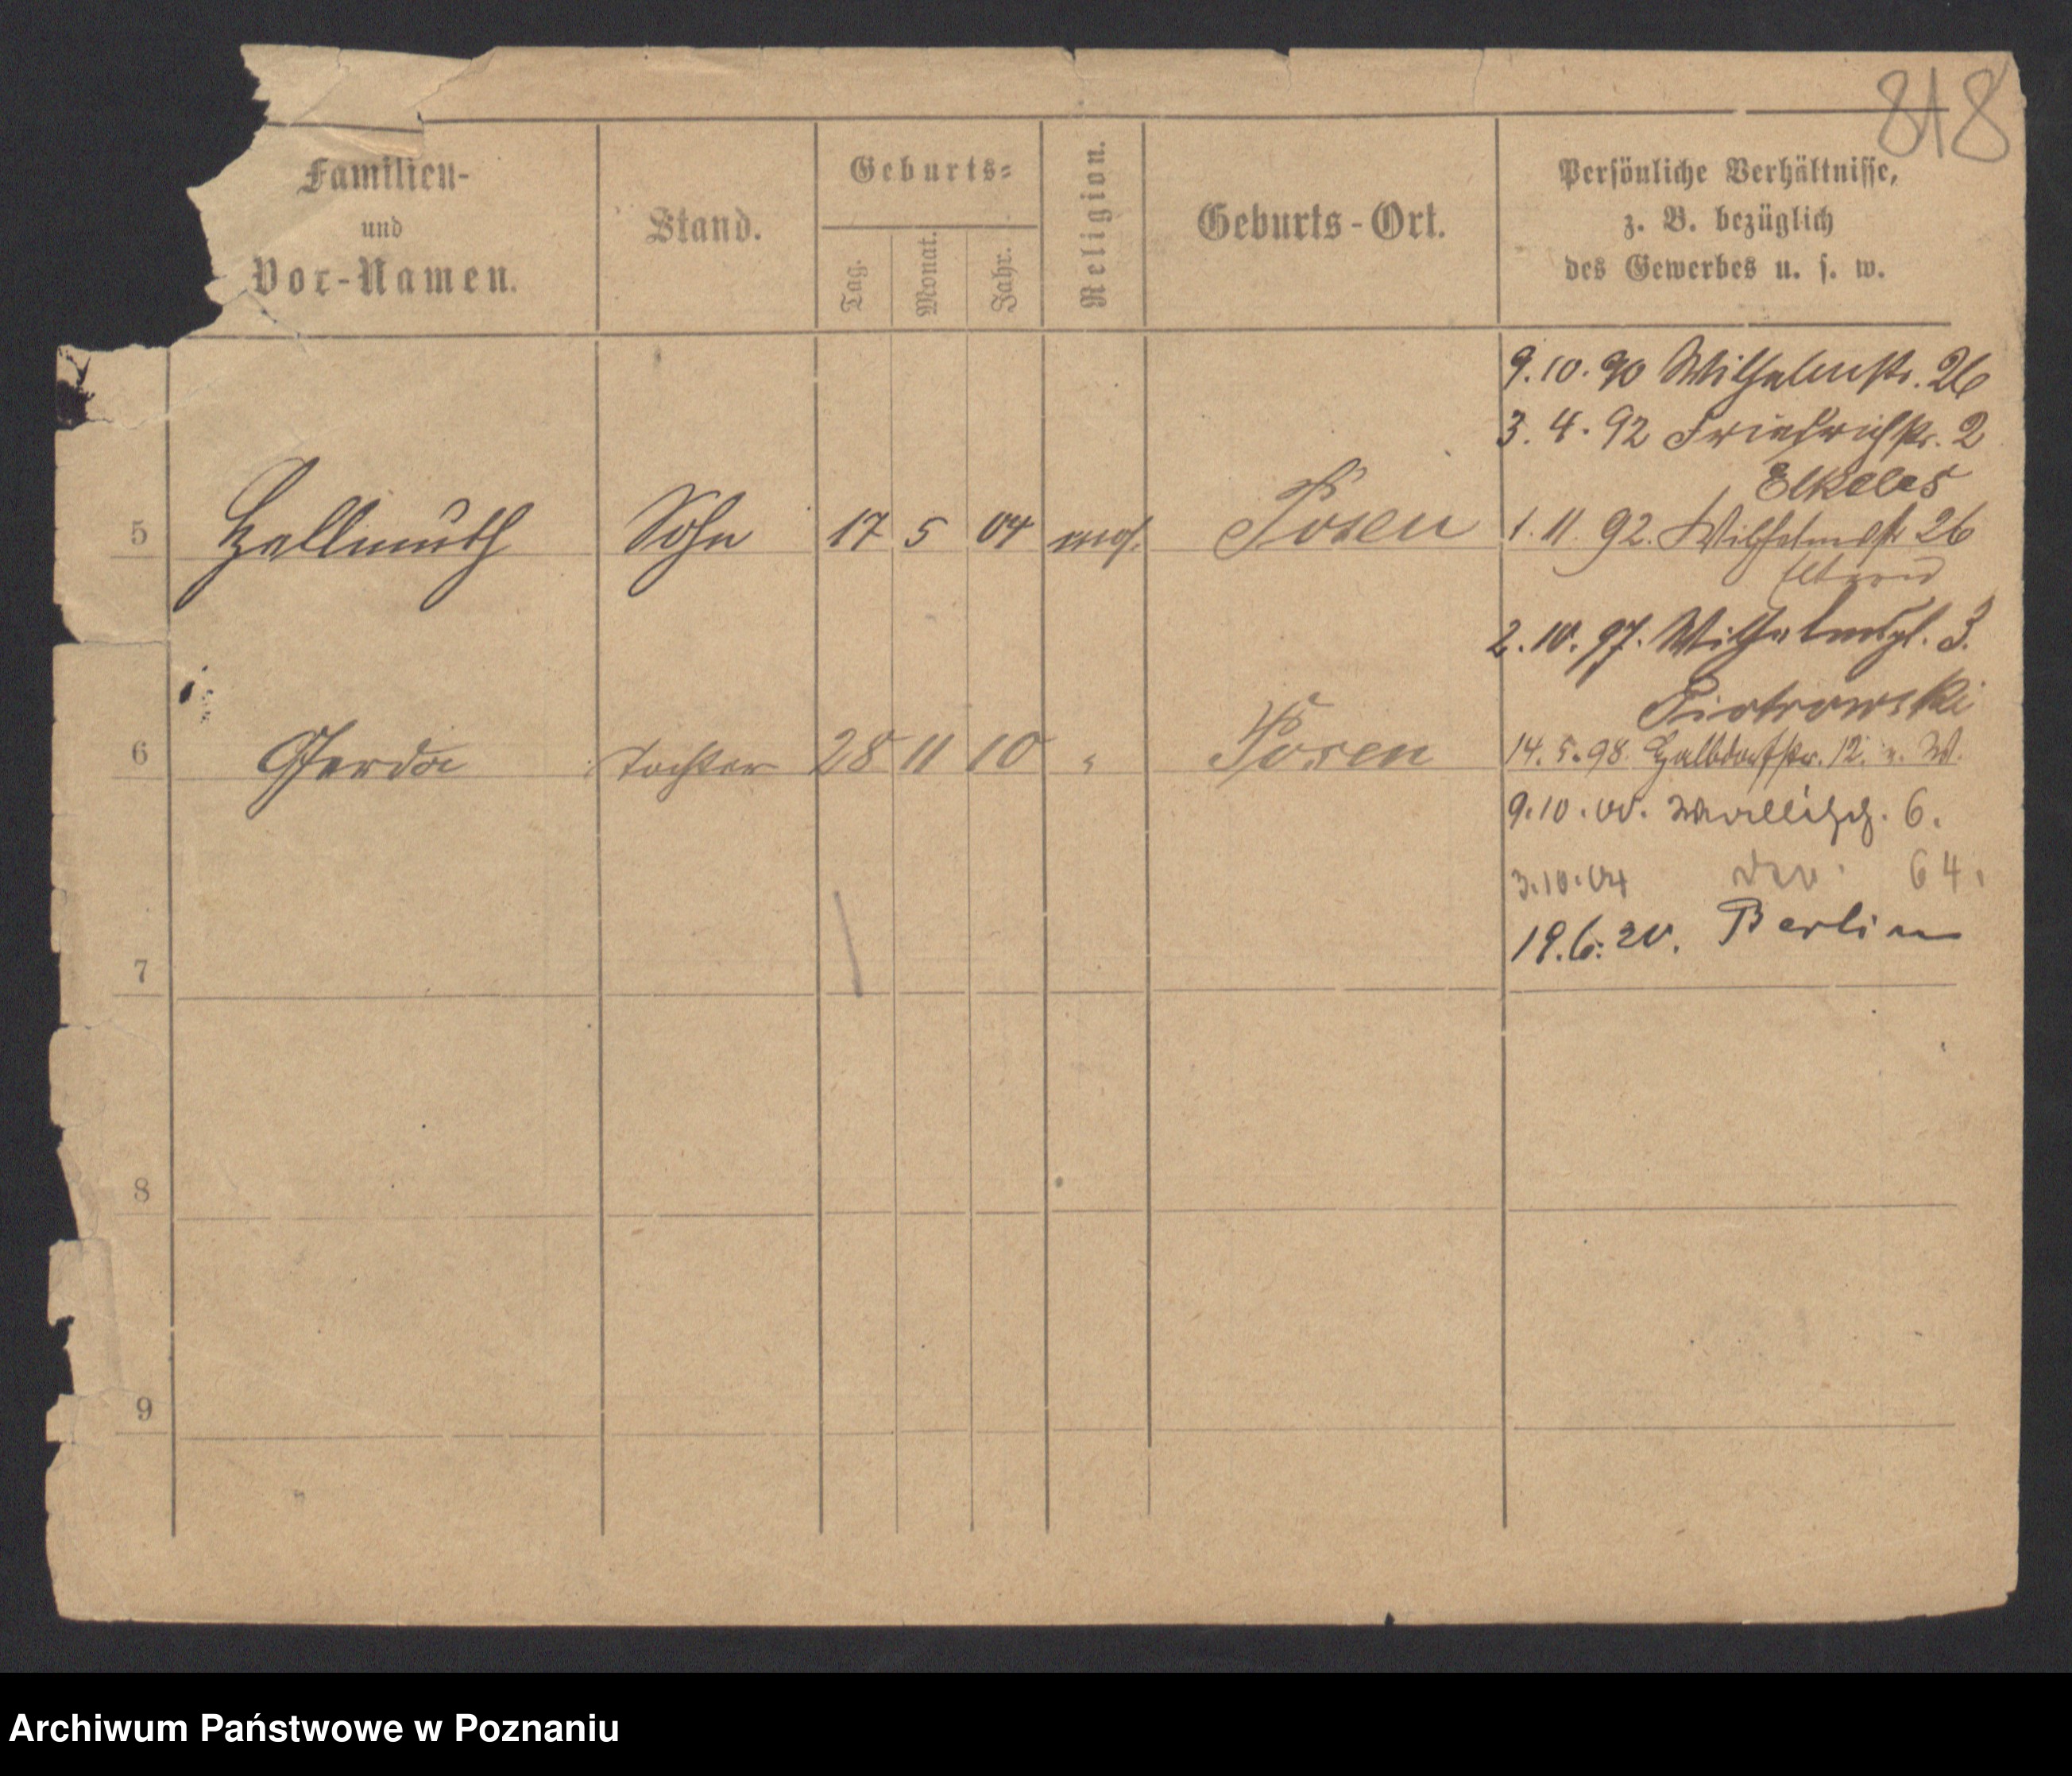 818
Familien-
und
Vor-Namen.
Stand.
Geburts-
Tag.
Monat.
Jahr.
Religion.
Geburts-Ort.
Persönliche Verhältnisse,
z. B. bezüglich
des Gewerbes u. s. w.
9.10.90 Wilhelmstr. 26
3.4.92 Friedrichstr. 2
Elkeles
5 Hellmuth Sohn 17 5 04 Posen 1.11.92. Wilhelmstr 26
Eltern
2.10.97. Wilhelmspl. 3.
Piotrowski
6 Gerda Tochter 28 11 10 " Posen 14.5.98. Halbdorfstr. 12.
9.10.00. Wallisch. 6.
3.10.04 64.
19.6.20. Berlin
7
8
9
Archiwum Państwowe w Poznaniu